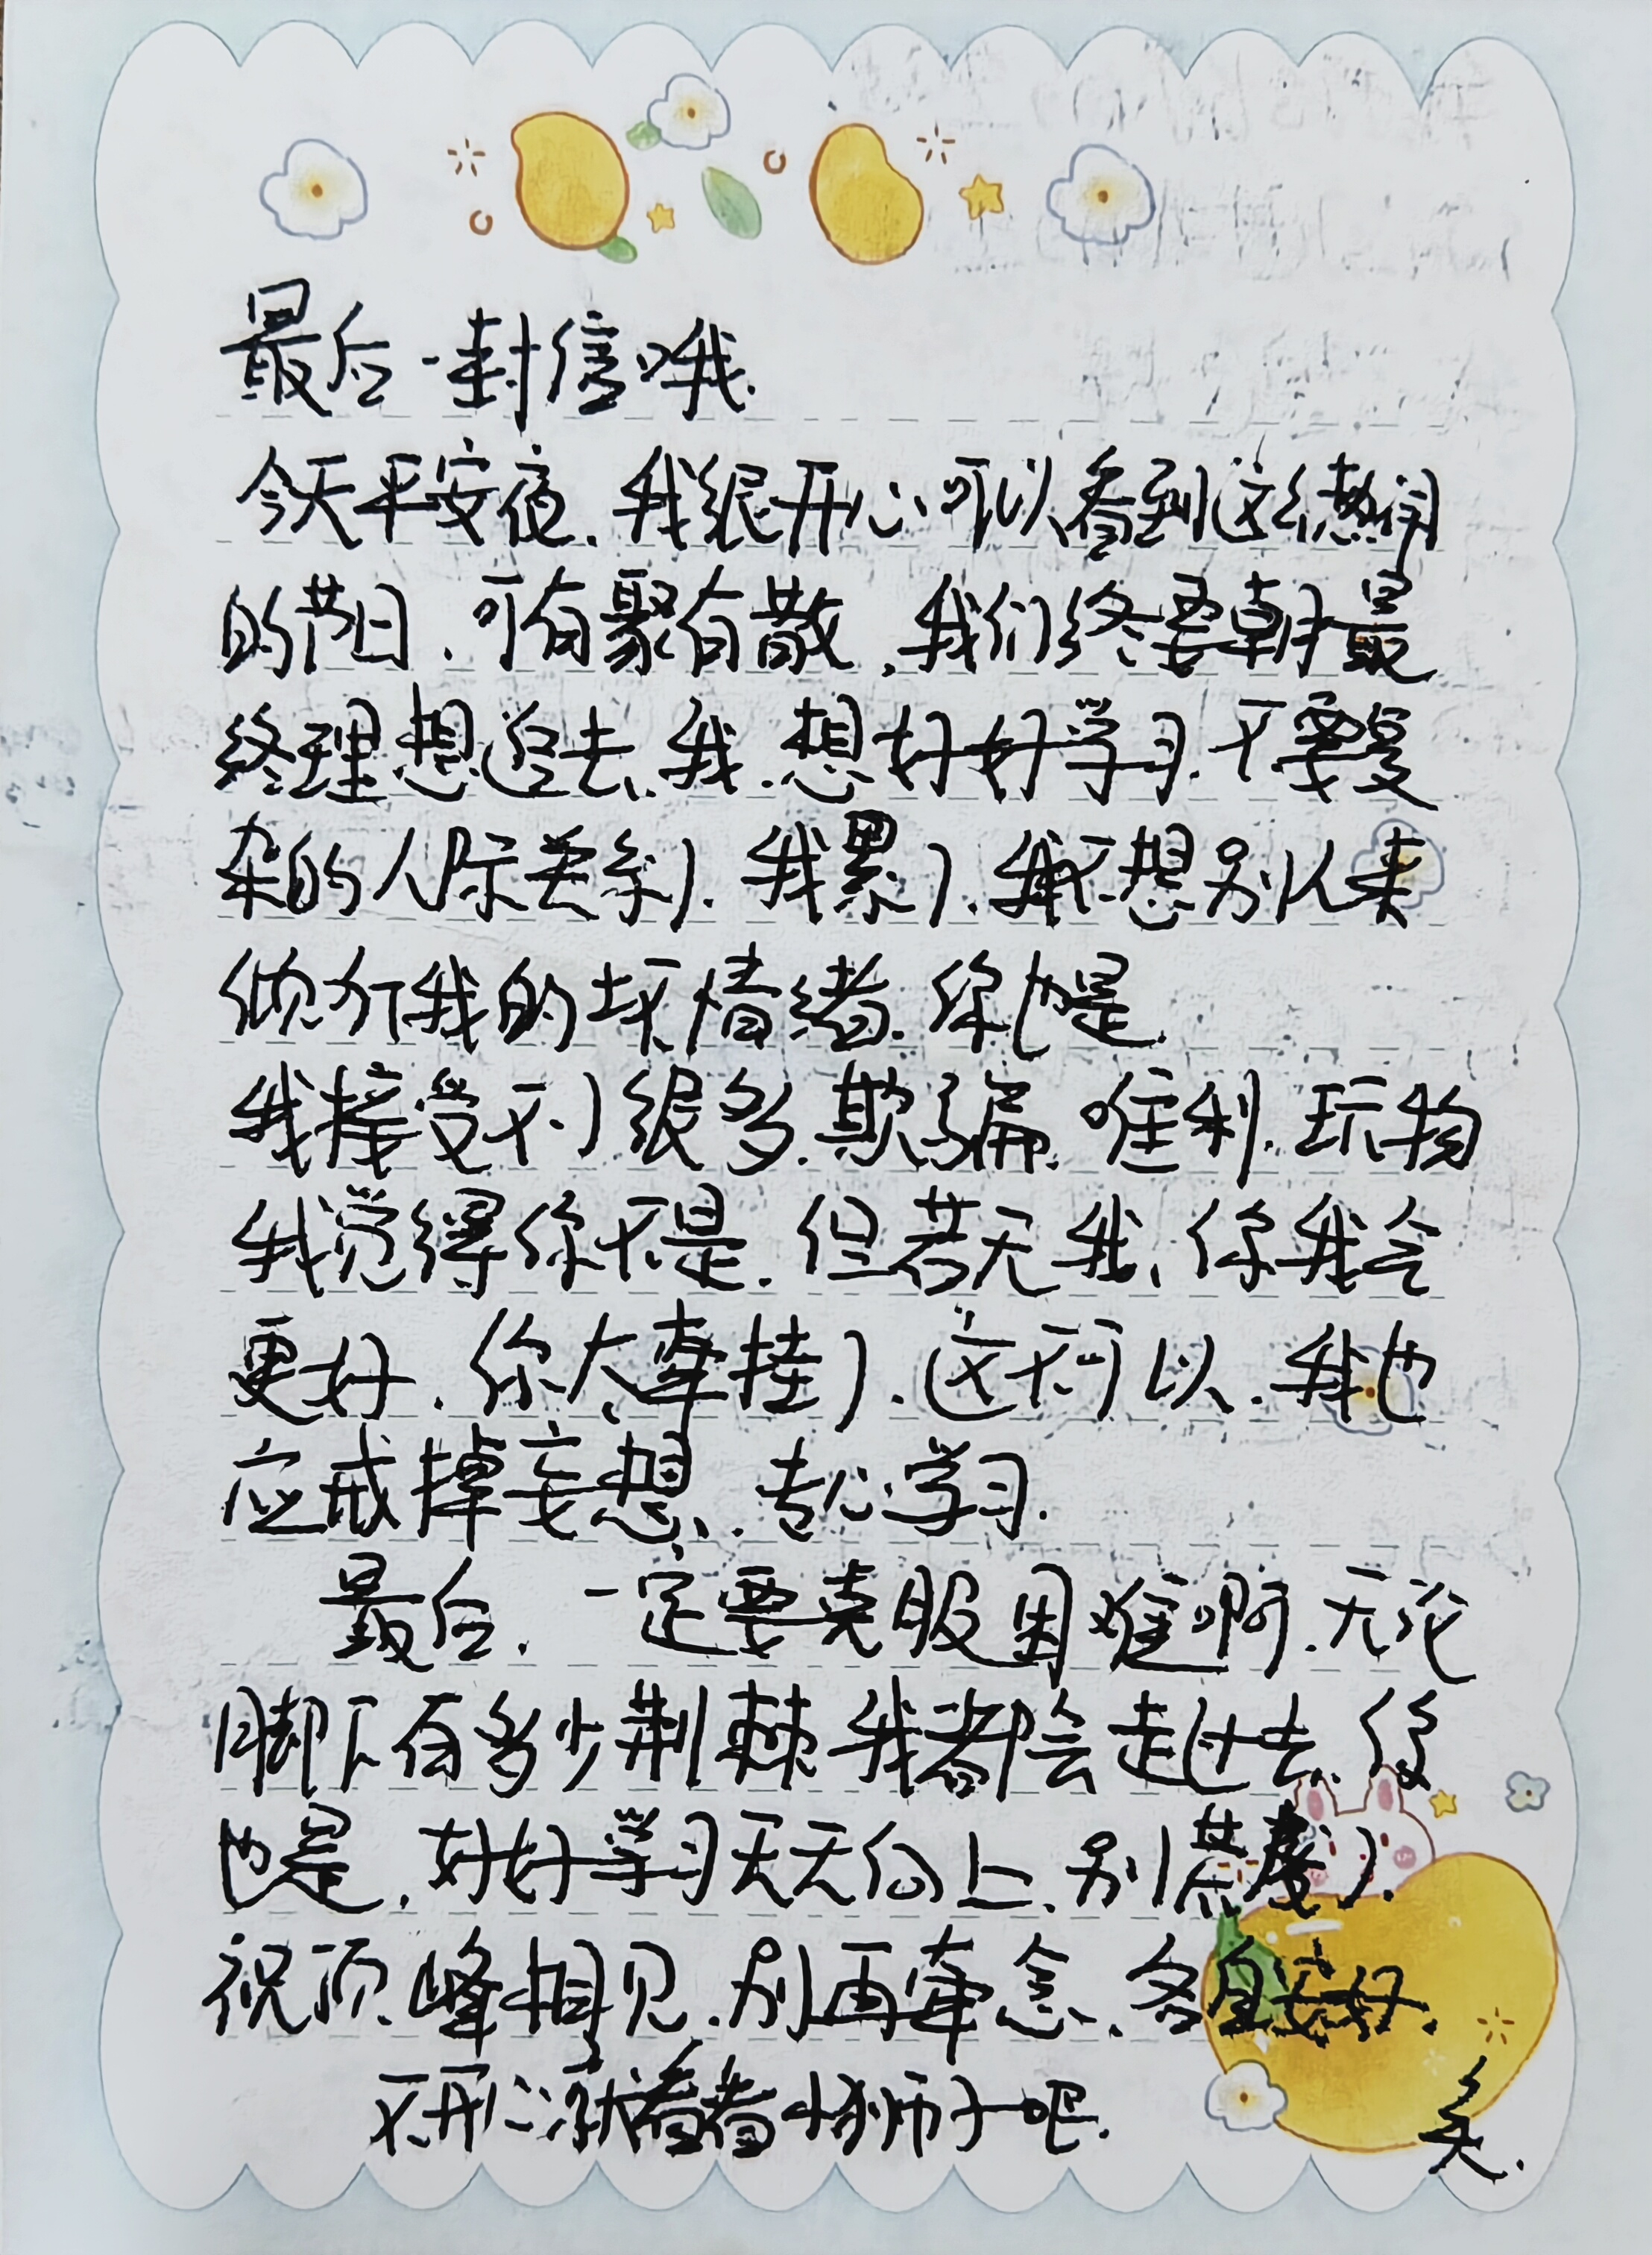 最后一封信哦.
今天平安夜.我很开心可以看到这么热闹
的节日.可有聚有散.我们终要朝最
终理想追去.我.想好好学习.不要复
杂的人际关系了.我累了.我不想别人来
倾听我的坏情绪.你也是.
我接受不了很多.欺骗.唯利.玩物
我觉得你不是.但若无我.你我会
更好.你太牵挂了.这不可以.我也
应戒掉妄想.专心学习.
最后.一定要克服困难啊.无论
脚下有多少荆棘我都会走过去.你
也是.好好学习天天向上.别荒废了.
祝顶峰相见.别再牵念.各自安好.
不开心就看看小狮子吧.